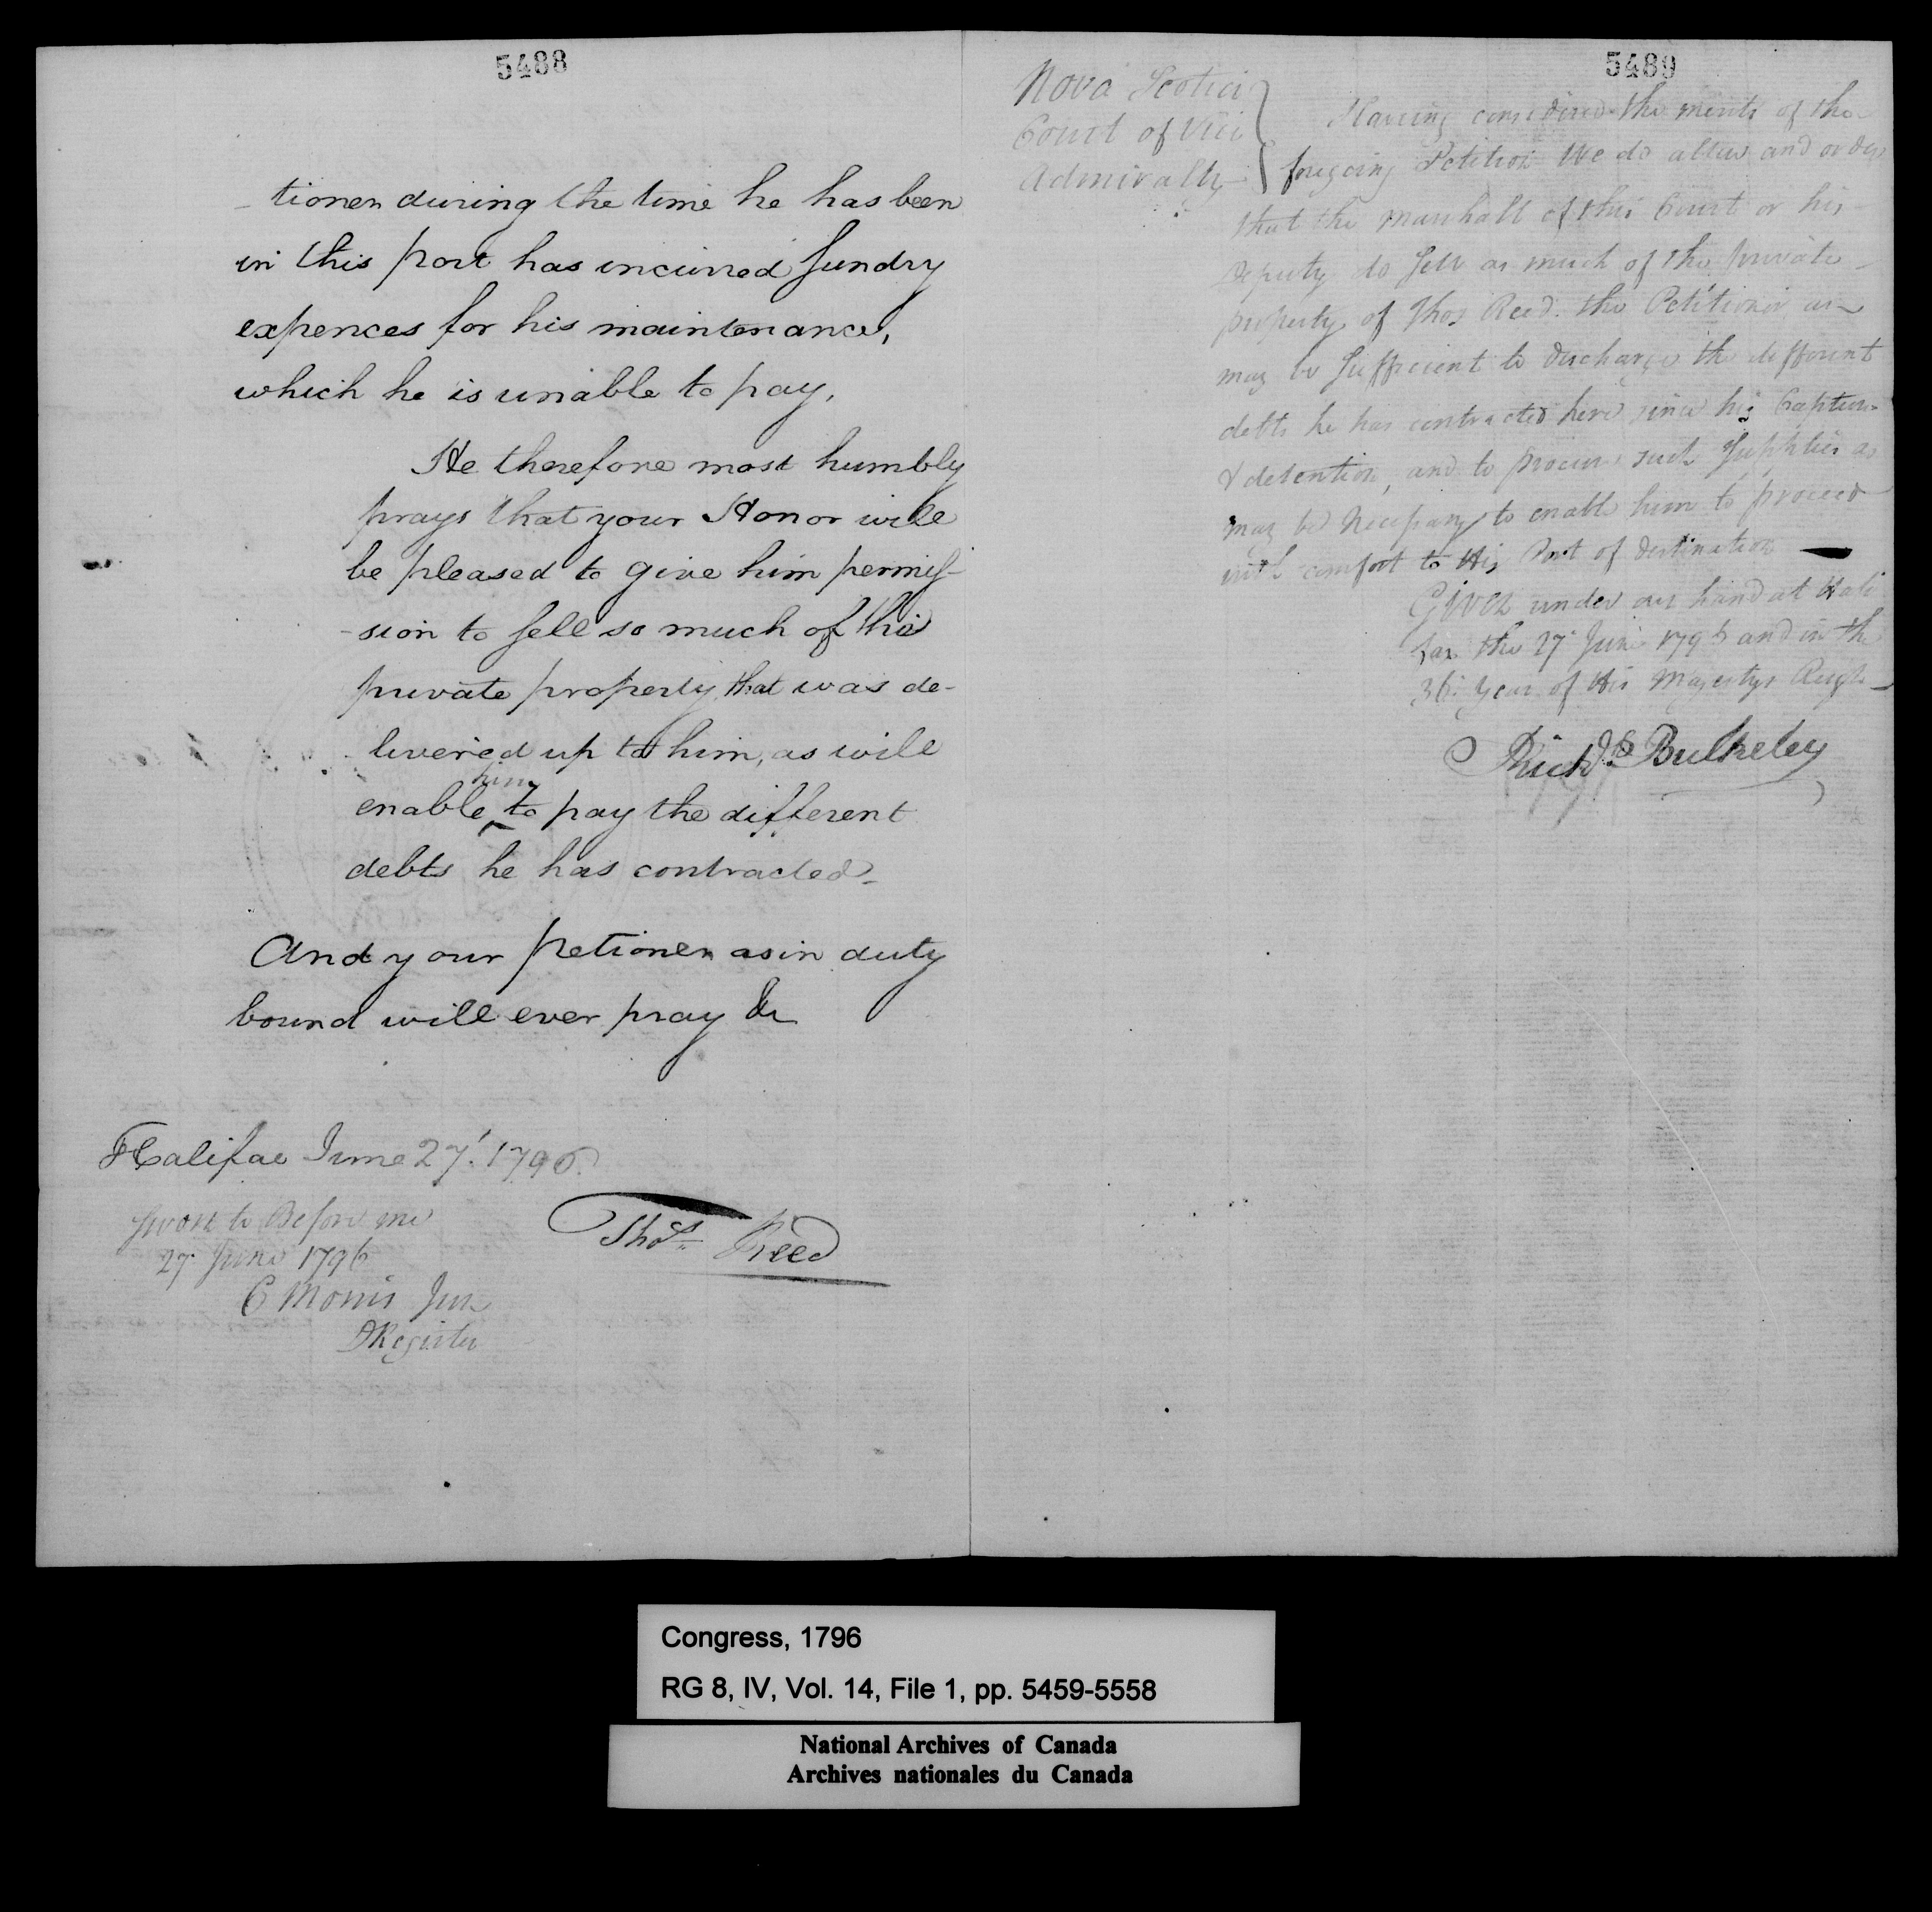 5488
- tioner during the time he has been
in this port has incurred sundry
expences for his maintenance,
which he is unable to pay,
He therefore most humbly
prays that your Honor will
be pleased to give him permis-
-sion to sell so much of his
private property, that was de-
livered up to him, as will
him
enable ^ to pay the different
debts he has contracted -
And your petioner as in duty
bound will ever pray &c
Halifax June 27. 1796.
Sworn to Before me
27 June 1796
C Morris Jun
DRegister
Thos Reed
5489
Nova Scotia
Court of Vice
Admiralty
Having considered the merits of the
foregoing Petition We do allow and order
that the Marshall of this Court or his
Deputy do sell as much of the private
property of Thos Reed the Petitioner as
may be sufficient to discharge the different
debts he has contracted here since his Capture
& detention, and to procure such supplies as
may be necessary to enable him to proceed
with comfort to His Port of destination —
Given under our hand at Hali
fax the 27 June 1796 and in the
36 Year of His Majestys Reign
Richd Bulkeley
Congress, 1796
RG 8, IV, Vol. 14, File 1, pp. 5459-5558
National Archives of Canada
Archives nationales du Canada